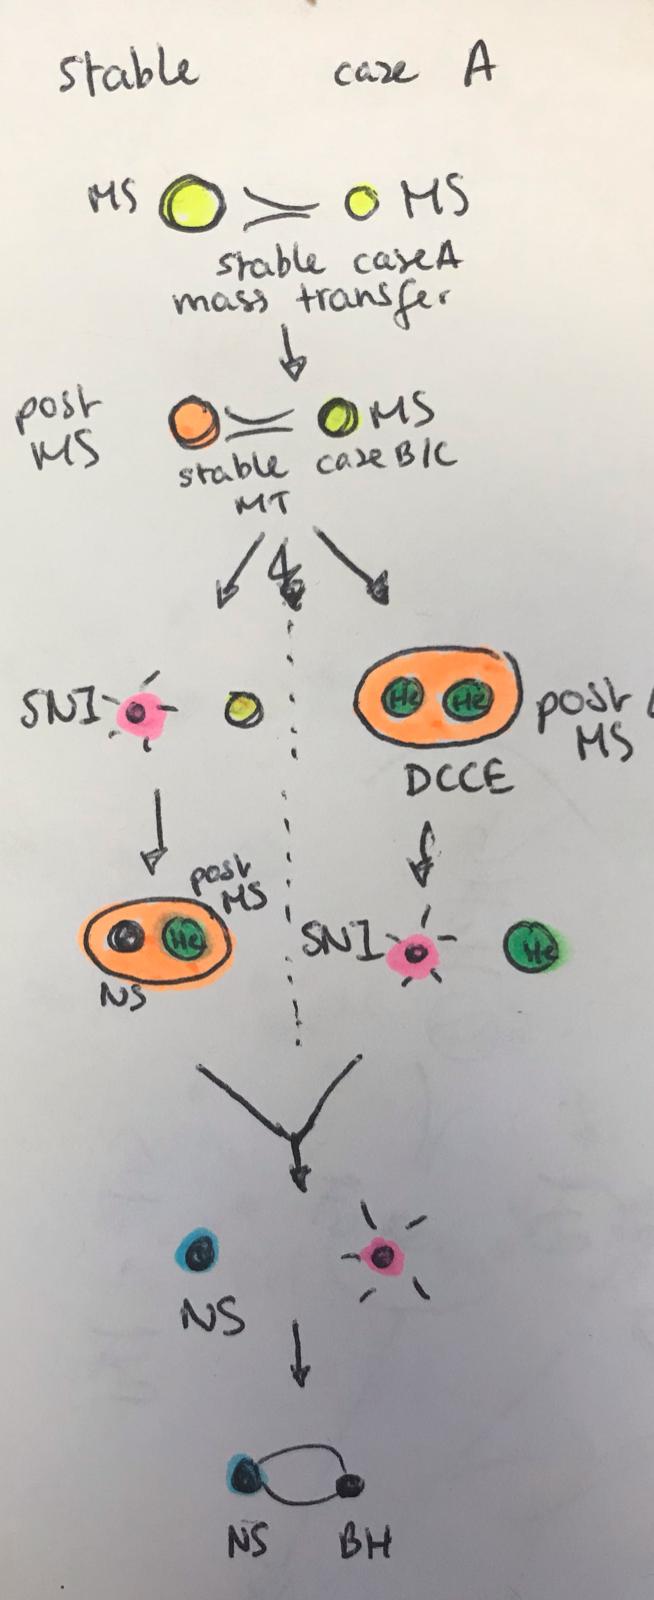 stable case A
MS MS
stable case A
mass transfer
post
MS
MS
stable case B/C
MT
SN1
He He
post
MS
DCCE
post
MS
He
NS
SN1
He
NS
NS BH